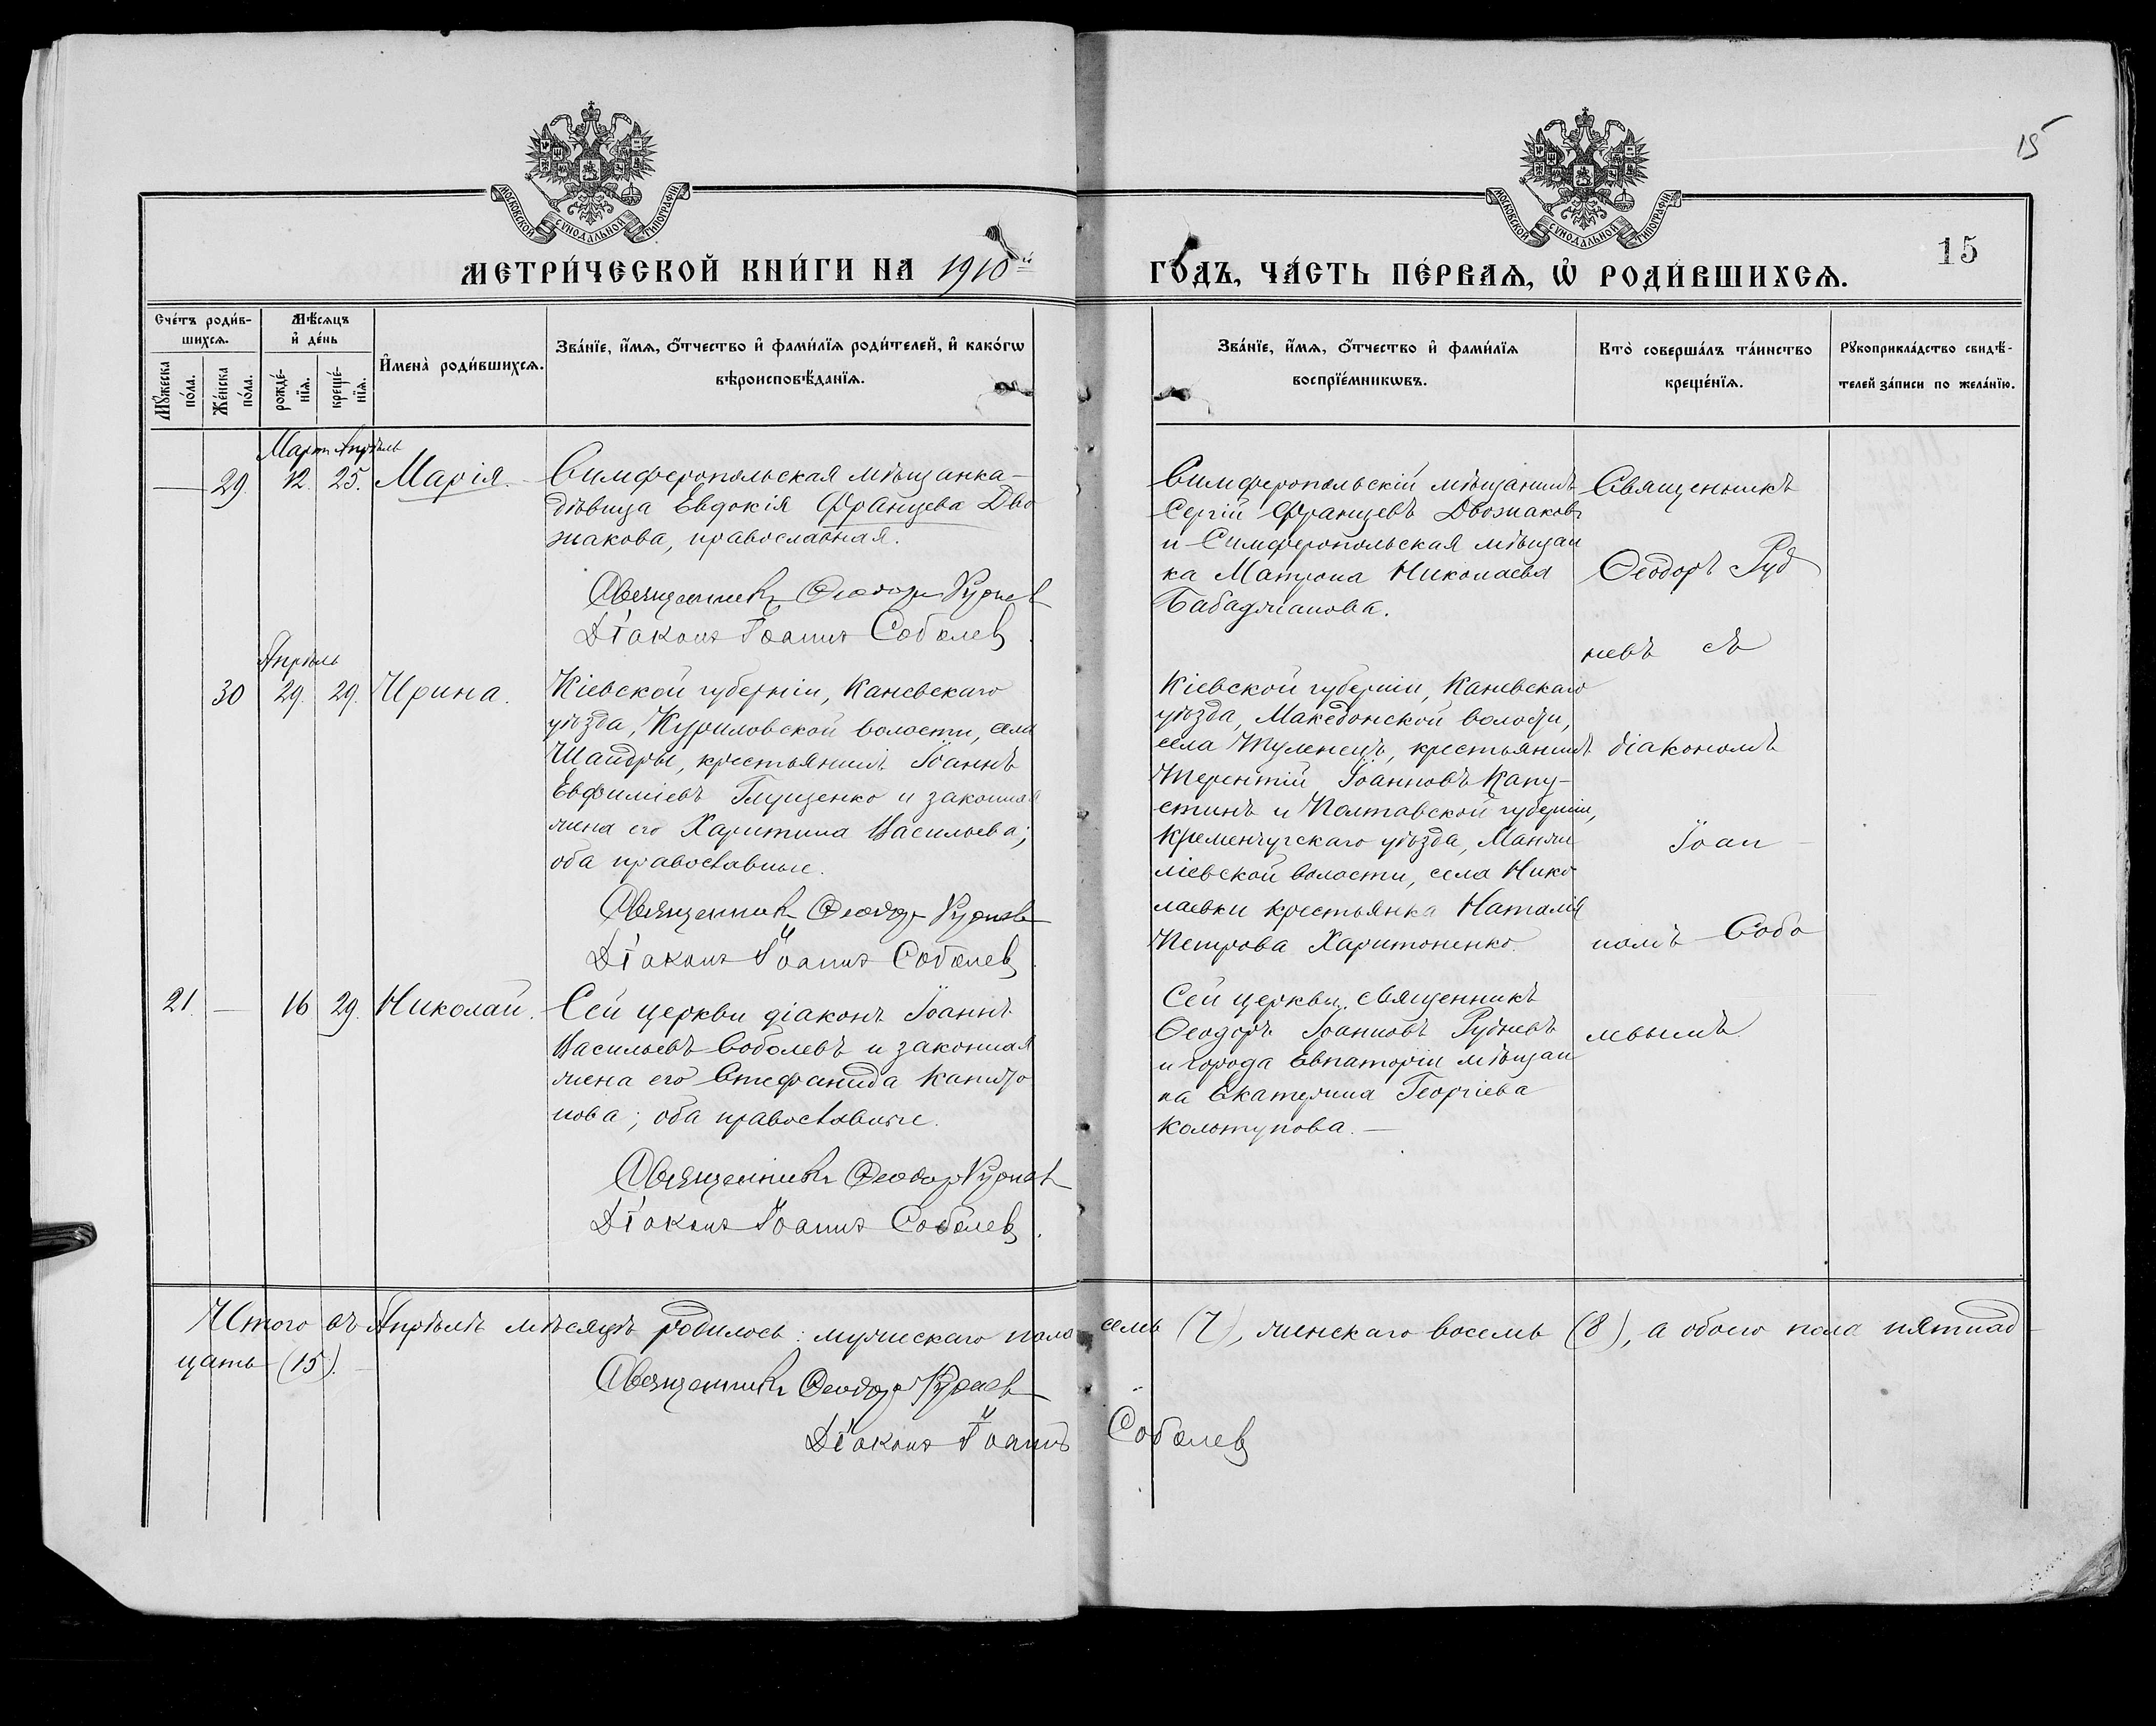 15
МОСКОВСКОЙ СУНОДАЛЬНОЙ ТИПОГРАФІИ
МОСКОВСКОЙ СУНОДАЛЬНОЙ ТИПОГРАФІИ
15
МЕТРИ́ЧЕСКОЙ КНИ́ГИ НА 1910й
ГО́ДЪ, ЧА́СТЬ ПЕ́РВАѦ, Ѡ҆ РОДИ́ВШИХСѦ.
Сче́тъ роди́в-
шихсѧ.
Мꙋ́жеска по́ла.
Же́нска по́ла.
Мѣ́сѧцъ
и҆ де́нь
рожде́-
нїѧ.
креще́-
нїѧ.
И҆мена̀ роди́вшихсѧ.
Зва́нїе, и҆́мѧ, ѻ҆́тчество и҆ фами́лїѧ роди́телей, и҆ како́гѡ
вѣроисповѣ́данїѧ.
Зва́нїе, и҆́мѧ, ѻ҆́тчество и҆ фами́лїѧ
воспрїе́мникѡвъ.
Кто̀ соверша́лъ та́инство
креще́нїѧ.
Рꙋкоприкла́дство свидѣ́-
телей за́писи по жела́нїю.
Март Апрѣль
— 29. 12. 25. Марія. —
Симферопольская мѣщанка —
дѣвица Евдокія Францева Дво
жакова, православная.
Священникъ Ѳеодоръ Руднев
Діаконъ Іоаннъ Соболев
Симферопольскій мѣщанинъ
Сергій Францевъ Двожаковъ
и Симферопольская мѣщан
ка Матрона Николаева
Бабаджанова.
Священникъ
Ѳеодоръ Руд
невъ съ
діакономъ
Іоан —
номъ Собо
левымъ.
Апрѣль
30 29. 29. Ирина.
Кіевской губерніи, Каневскаго
уѣзда, Куриловской волости, села
Шандры, крестьянинъ Іоаннъ
Евфиміевъ Глущенко и законная
жена его Харитина Васильева;
оба православные.
Священникъ Ѳеодоръ Руднев
Діаконъ Іоаннъ Соболев.
Кіевской губерніи, Каневскаго
уѣзда, Македонской волости,
села Тулинецъ, крестьянинъ
Терентій Іоанновъ Капу-
стинъ и Полтавской губерніи,
Кременчугскаго уѣзда, Манжи
ліевской волости, села Нико
лаевки крестьянка Наталія
Петрова Харитоненко.
21. — 16 29. Николай.
Сей церкви діаконъ Іоаннъ
Васильевъ Соболевъ и законная
жена его Стефанида
нова; оба православные.
Священникъ Ѳеодоръ Руднев
Діаконъ Іоаннъ Соболев.
Сей церкви священникъ
Ѳеодоръ Іоанновъ Рудневъ
и города Евпаторіи мѣщан
ка Екатерина Георгіева
Колтунова. —
Итого въ Апрѣлѣ мѣсяцѣ родилось: мужескаго пола семь (7), женскаго восемь (8), а обоего пола пятнад
цать (15). —
Священникъ Ѳеодоръ Руднев
Діаконъ Іоаннъ Соболев